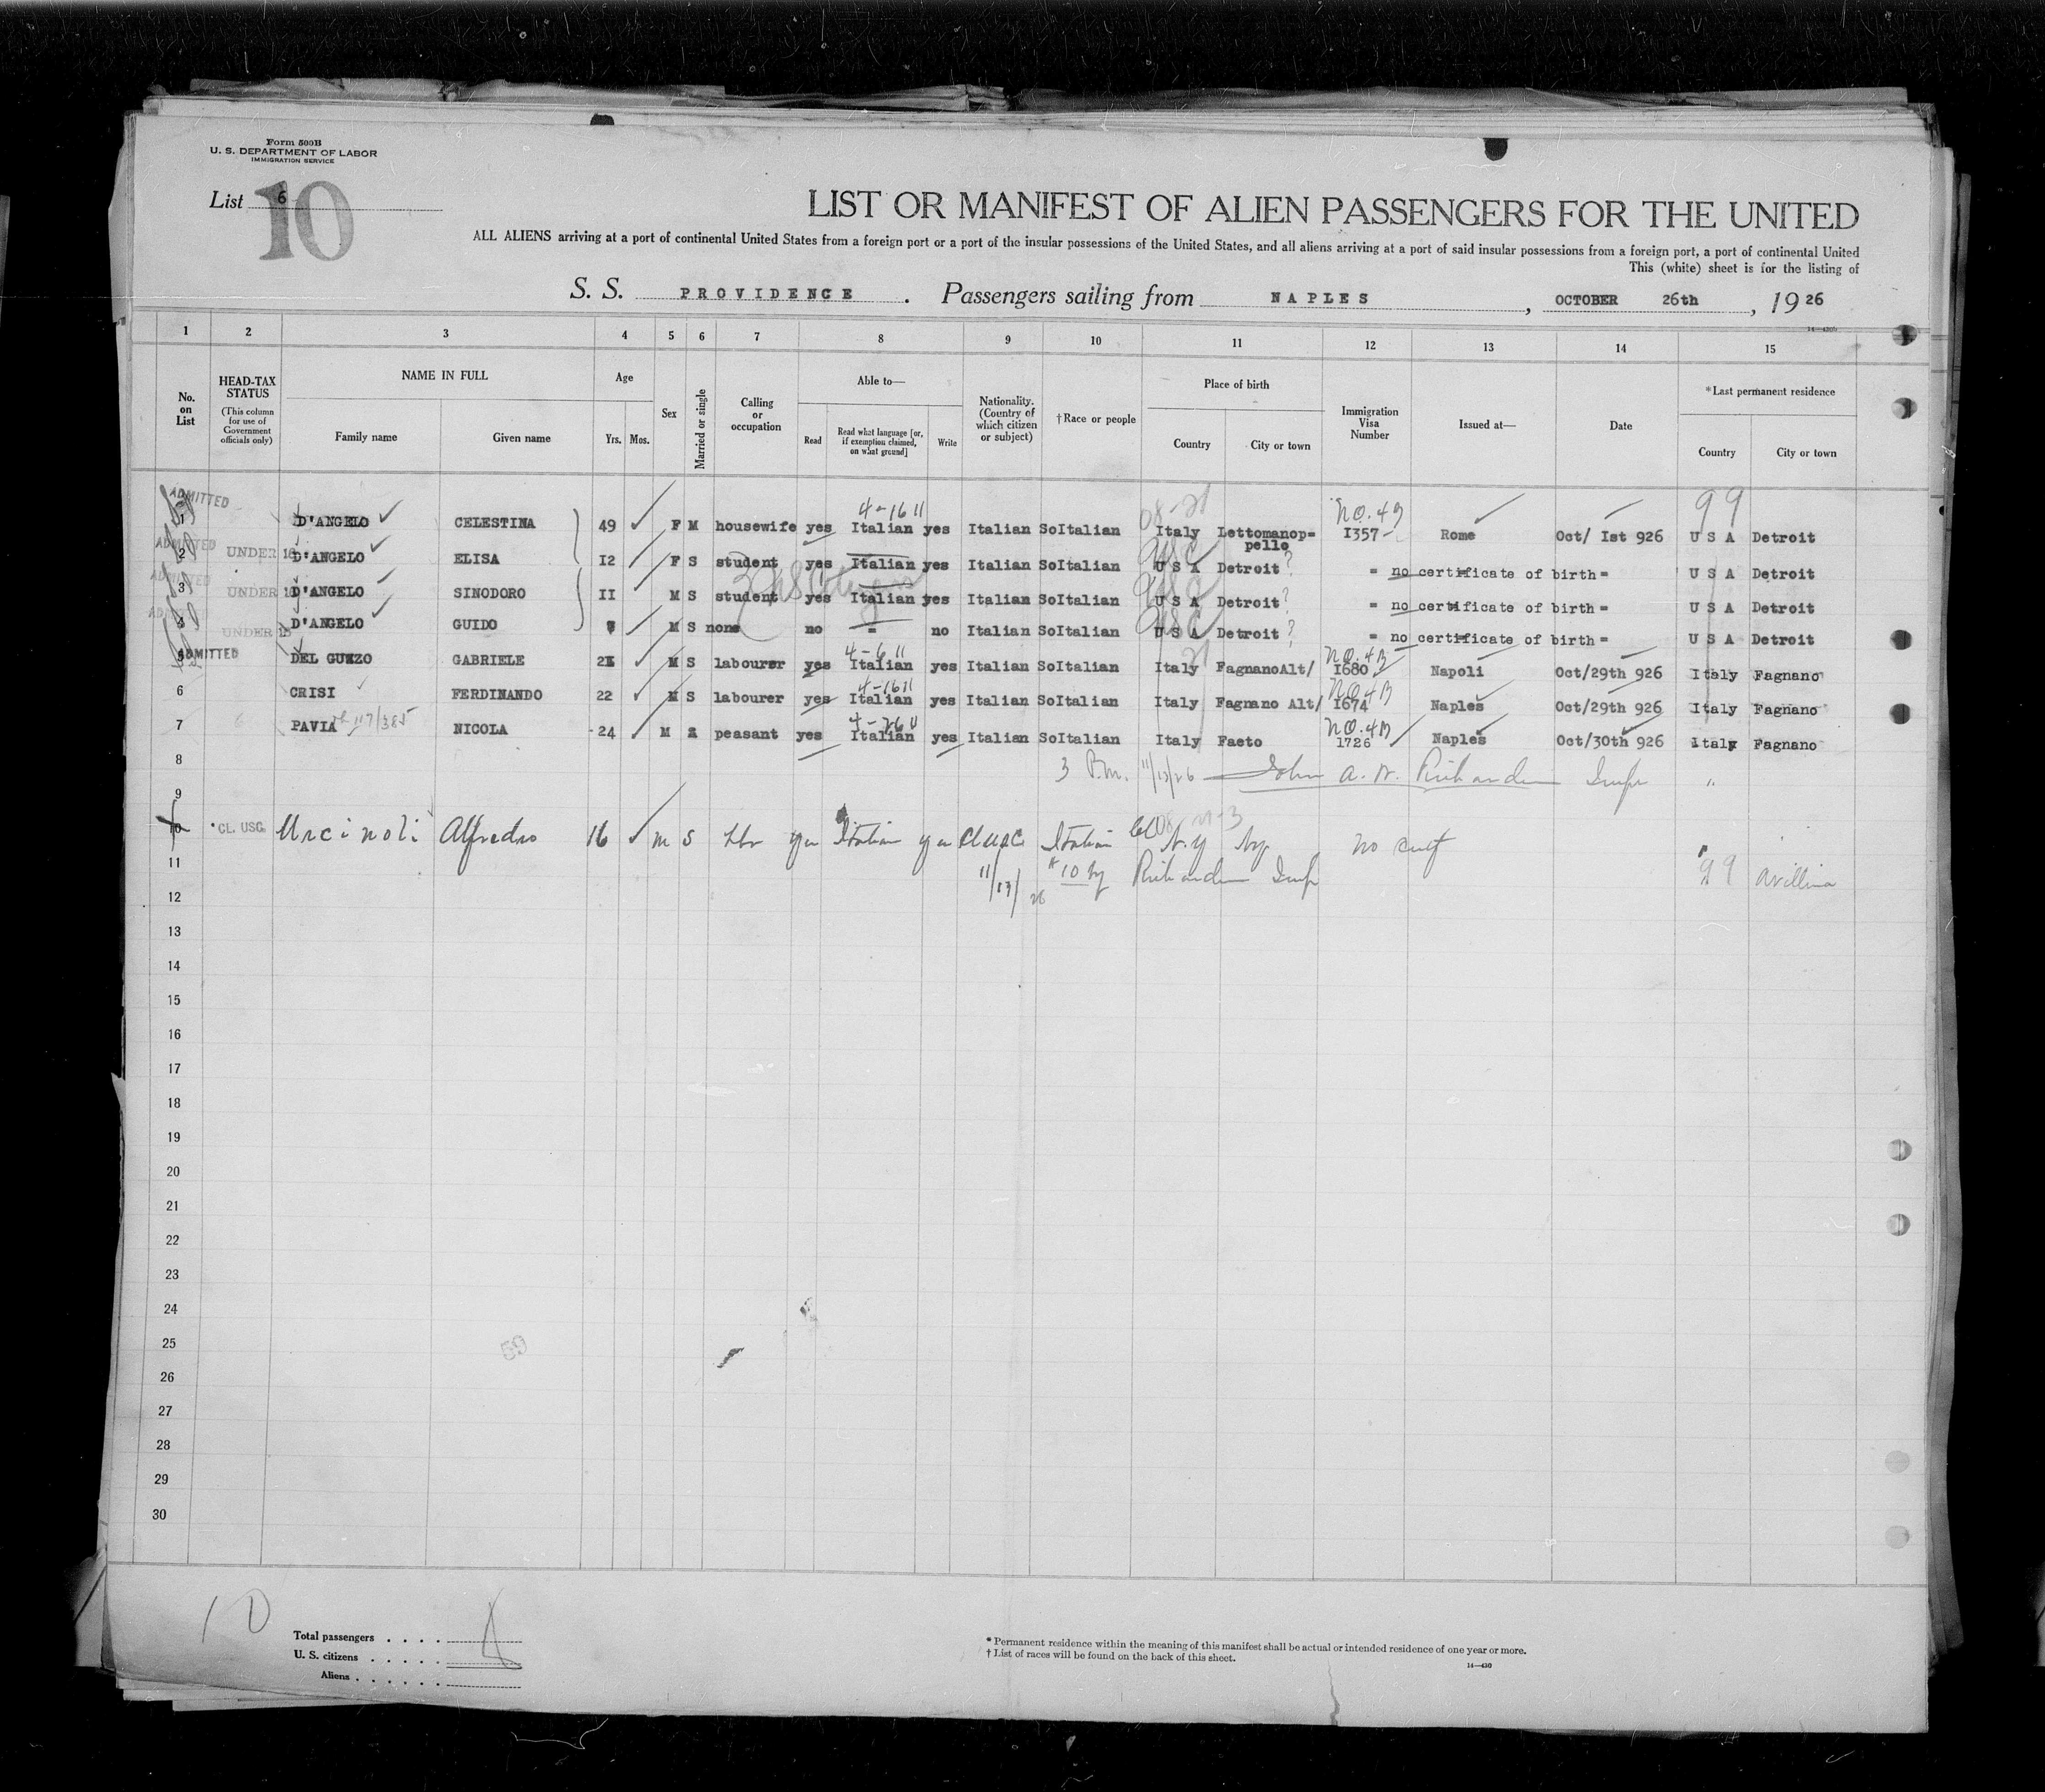 Form 500B
U. S. DEPARTMENT OF LABOR
IMMIGRATION SERVICE
List 6
10
LIST OR MANIFEST OF ALIEN PASSENGERS FOR THE UNITED
ALL ALIENS arriving at a port of continental United States from a foreign port or a port of the insular possessions of the United States, and all aliens arriving at a port of said insular possessions from a foreign port, a port of continental United
This (white) sheet is for the listing of
S. S. PROVIDENCE. Passengers sailing from NAPLES, OCTOBER 26th, 1926
1 2 3 4 5 6 7 8 9 10 11 12 13 14 15
No. on List
HEAD-TAX STATUS
(This column for use of Government officials only)
NAME IN FULL
Family name Given name
Age
Yrs. Mos.
Sex
Married or single
Calling or occupation
Able to—
Read
Read what language [or, if exemption claimed, on what ground]
Write
Nationality. (Country of which citizen or subject)
†Race or people
Place of birth
Country City or town
Immigration Visa Number
Issued at—
Date
*Last permanent residence
Country City or town
ADMITTED 4-16 11 08-21 NO.4B 99
1 D'ANGELO CELESTINA 49 F M housewife yes Italian yes Italian SoItalian Italy Lettomanop=pello I357 Rome Oct/ Ist 926 U S A Detroit
ADMITTED USC
2 UNDER 16 D'ANGELO ELISA I2 F S student yes Italian yes Italian SoItalian U S A Detroit ? = no certificate of birth= U S A Detroit
ADMITTED USC
3 UNDER 16 D'ANGELO SINODORO II M S student yes Italian yes Italian SoItalian U S A Detroit ? = no certificate of birth= U S A Detroit
USC
4 UNDER D'ANGELO GUIDO M S none no = no Italian SoItalian U S A Detroit ? = no certificate of birth= U S A Detroit
ADMITTED 4-6 11 21 NO.4B
5 DEL GUZZO GABRIELE M S labourer yes Italian yes Italian SoItalian Italy FagnanoAlt/ I680 Napoli Oct/29th 926 Italy Fagnano
4-16 11 NO 4B
6 CRISI FERDINANDO 22 M S labourer yes Italian yes Italian SoItalian Italy Fagnano Alt/ I674 Naples Oct/29th 926 Italy Fagnano
4-26 11 NO.4B
7 PAVIA NICOLA 24 M peasant yes Italian yes Italian SoItalian Italy Faeto 1726 Naples Oct/30th 926 Italy Fagnano
8 3 P.m. 11/13/26 John A. W. Richardson Inspr "
9
10 CL. USC. Urcinoli Alfredo 16 m S Lbr Italian Cl USC Italian N.Y no cert
11 11/13/26 #10 by Richardson Insp 99 Avellino
12
13
14
15
16
17
18
19
20
21
22
23
24
25
59
26
27
28
29
30
10
Total passengers . . . .
U. S. citizens . . . . .
Aliens . . . . . .
* Permanent residence within the meaning of this manifest shall be actual or intended residence of one year or more.
† List of races will be found on the back of this sheet.
14—430